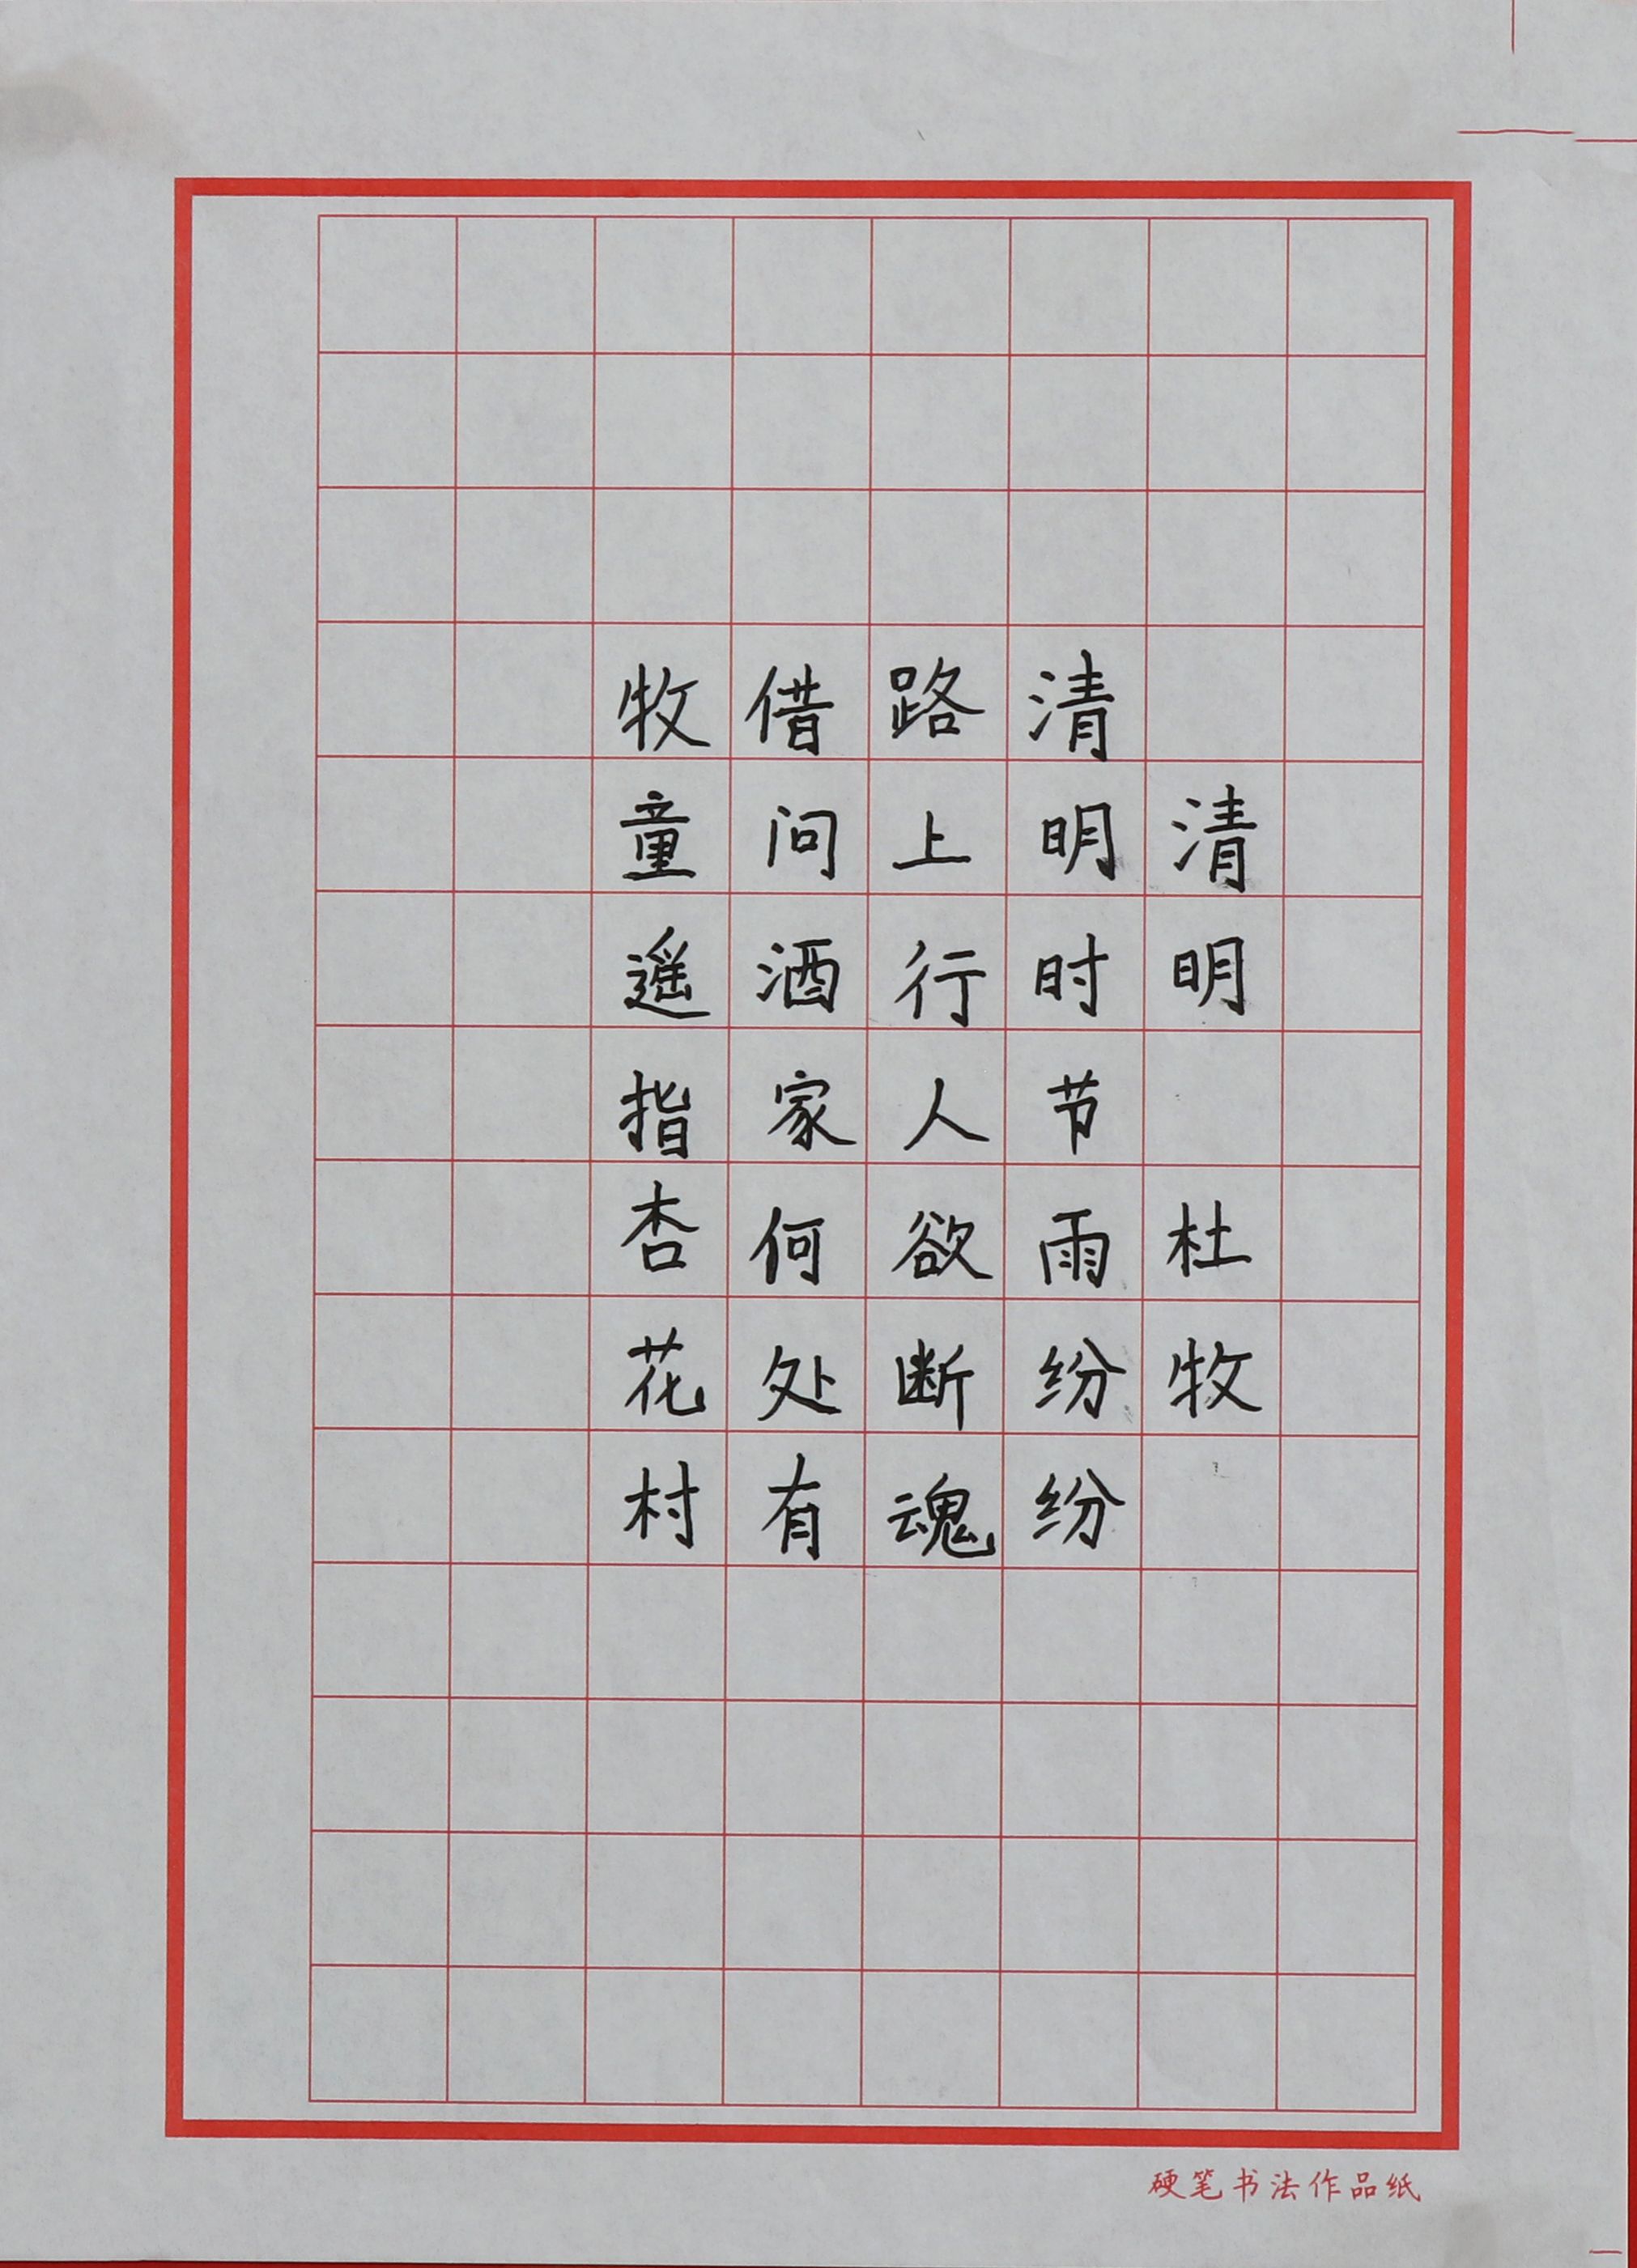 清明 杜牧
清明时节雨纷纷
路上行人欲断魂
借问酒家何处有
牧童遥指杏花村
硬笔书法作品纸